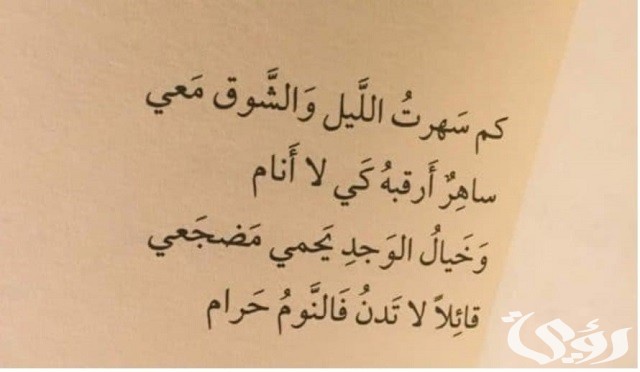 كم سَهرتُ اللَّيل وَالشَّوق مَعي
ساهِرٌ أَرقبهُ كَي لا أَنام
وَخَيالُ الوَجدِ يَحمي مَضجَعي
قائِلاً لا تَدنُ فَالنَّومُ حَرام
رؤية